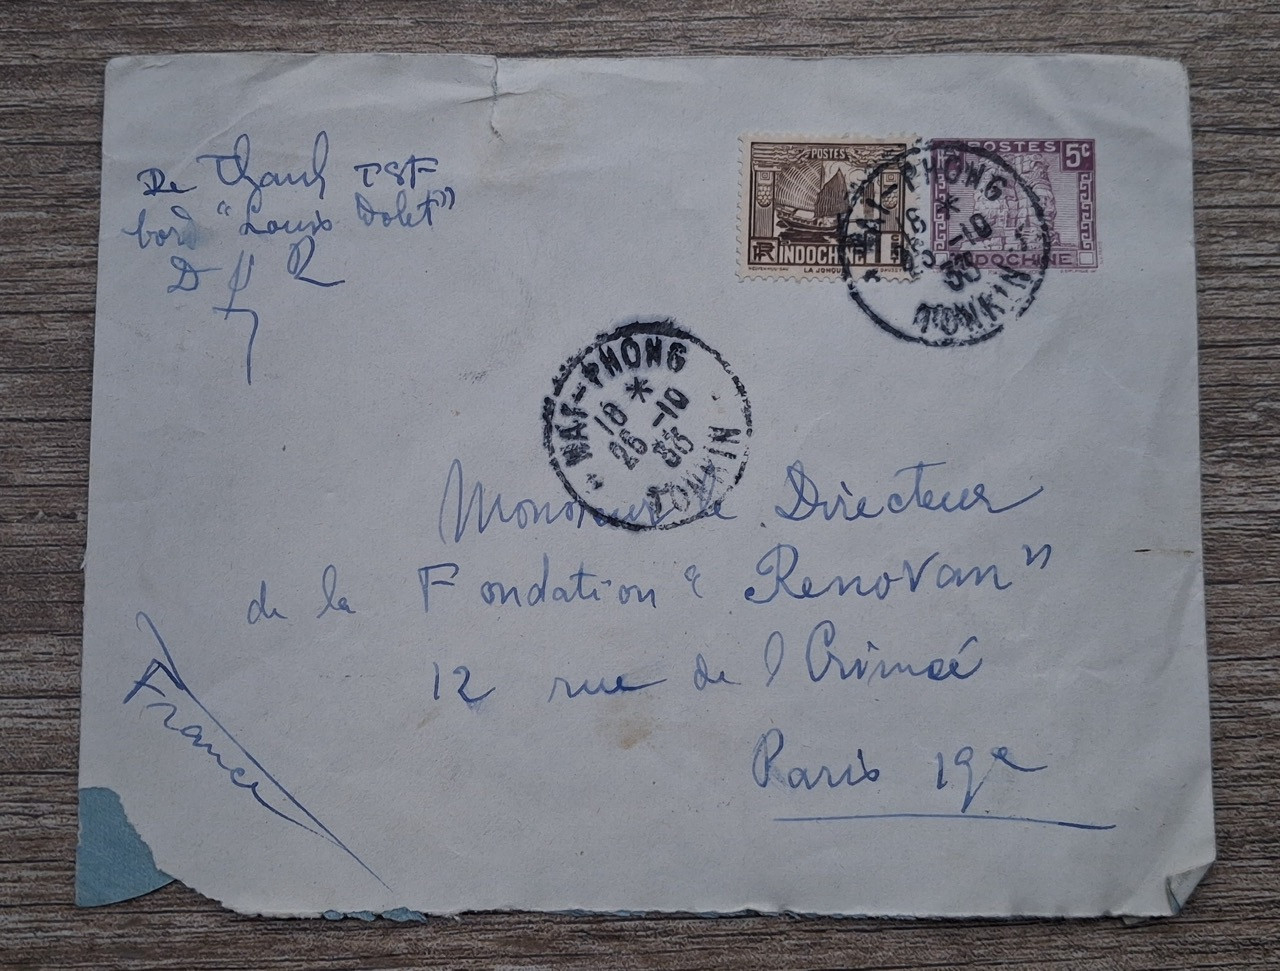 De Thanh TSF
bord "Louis Dolet"
POSTES
RF INDOCHINE
LA JONQUE
POSTES 5c
INDOCHINE
HAI-PHONG
*
-10
TONKIN
HAI-PHONG
18 *
26 -10
35
TONKIN
Monsieur le Directeur
de la Fondation "Renovan"
12 rue de l Crimeé
Paris 19e
France